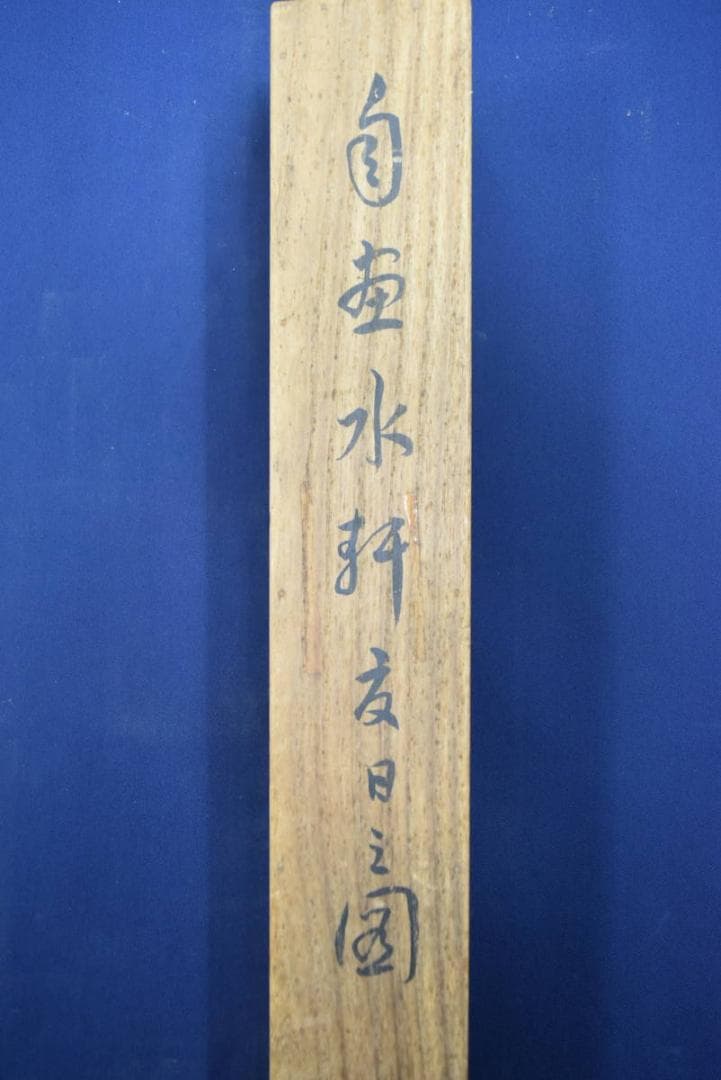 自画水軒夏日之図